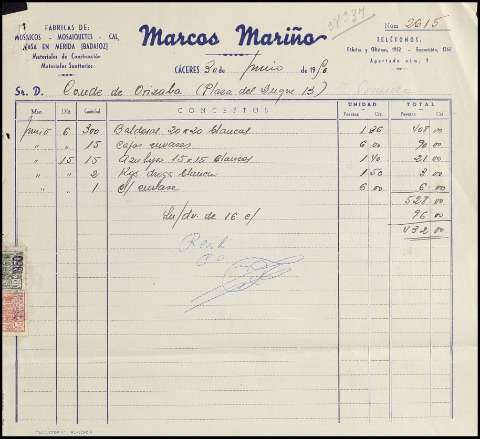 Nº 37
FABRICAS DE:
MOSAICOS - MOSAIQUETES - CAL,
CASA EN MERIDA (BADAJOZ)
Materiales de Construcción
Materiales Sanitarios
Marcos Mariño
Núm 2615
TELÉFONOS:
Apartado núm. 9
CÁCERES 30 de Junio de 19
Sr. D. Conde de Orizaba (Plaza del Duque 13)
Mes Día Cantidad CONCEPTOS UNIDAD TOTAL
Pesetas Cts. Pesetas Cts.
Junio 6 300 Baldosas 20x20 blancas 1 36 408 00
" " 15 Cajas envases 6 00 90 00
" 15 15 Azulejos 15x15 blancos 1 40 21 00
" " 2 Kgs droga blanca 1 50 3 00
" " 1 c/ envase 6 00 6 00
528 00
Su/dv. de 16 c/ 96 00
432 00